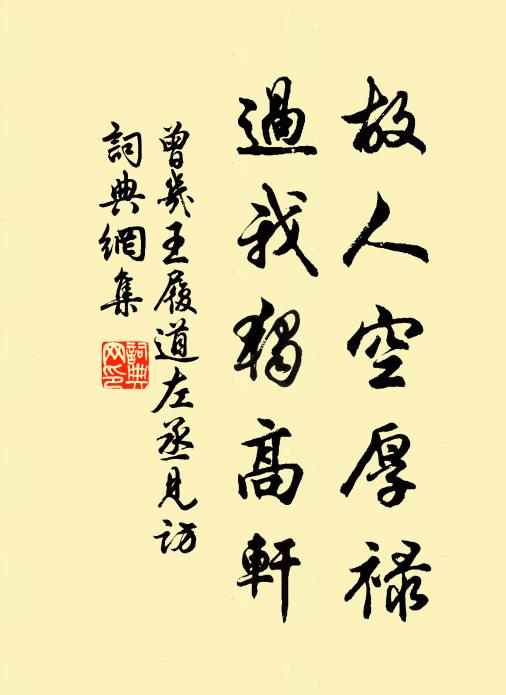 故人空厚祿
過我獨高軒
曾幾王履道左丞見訪
詞典網集
詞典
网印